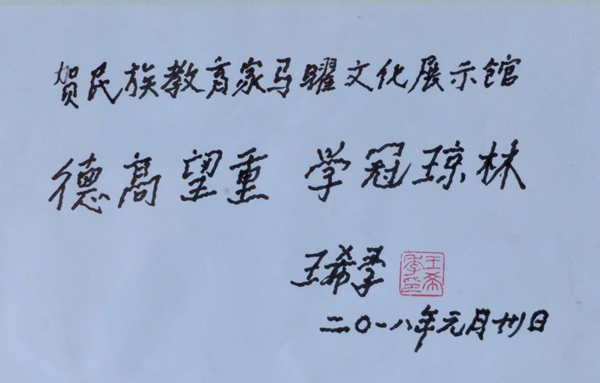 贺民族教育家马曜文化展示馆
德高望重 学冠琼林
王希季
王希季印
二〇一八年元月卅日